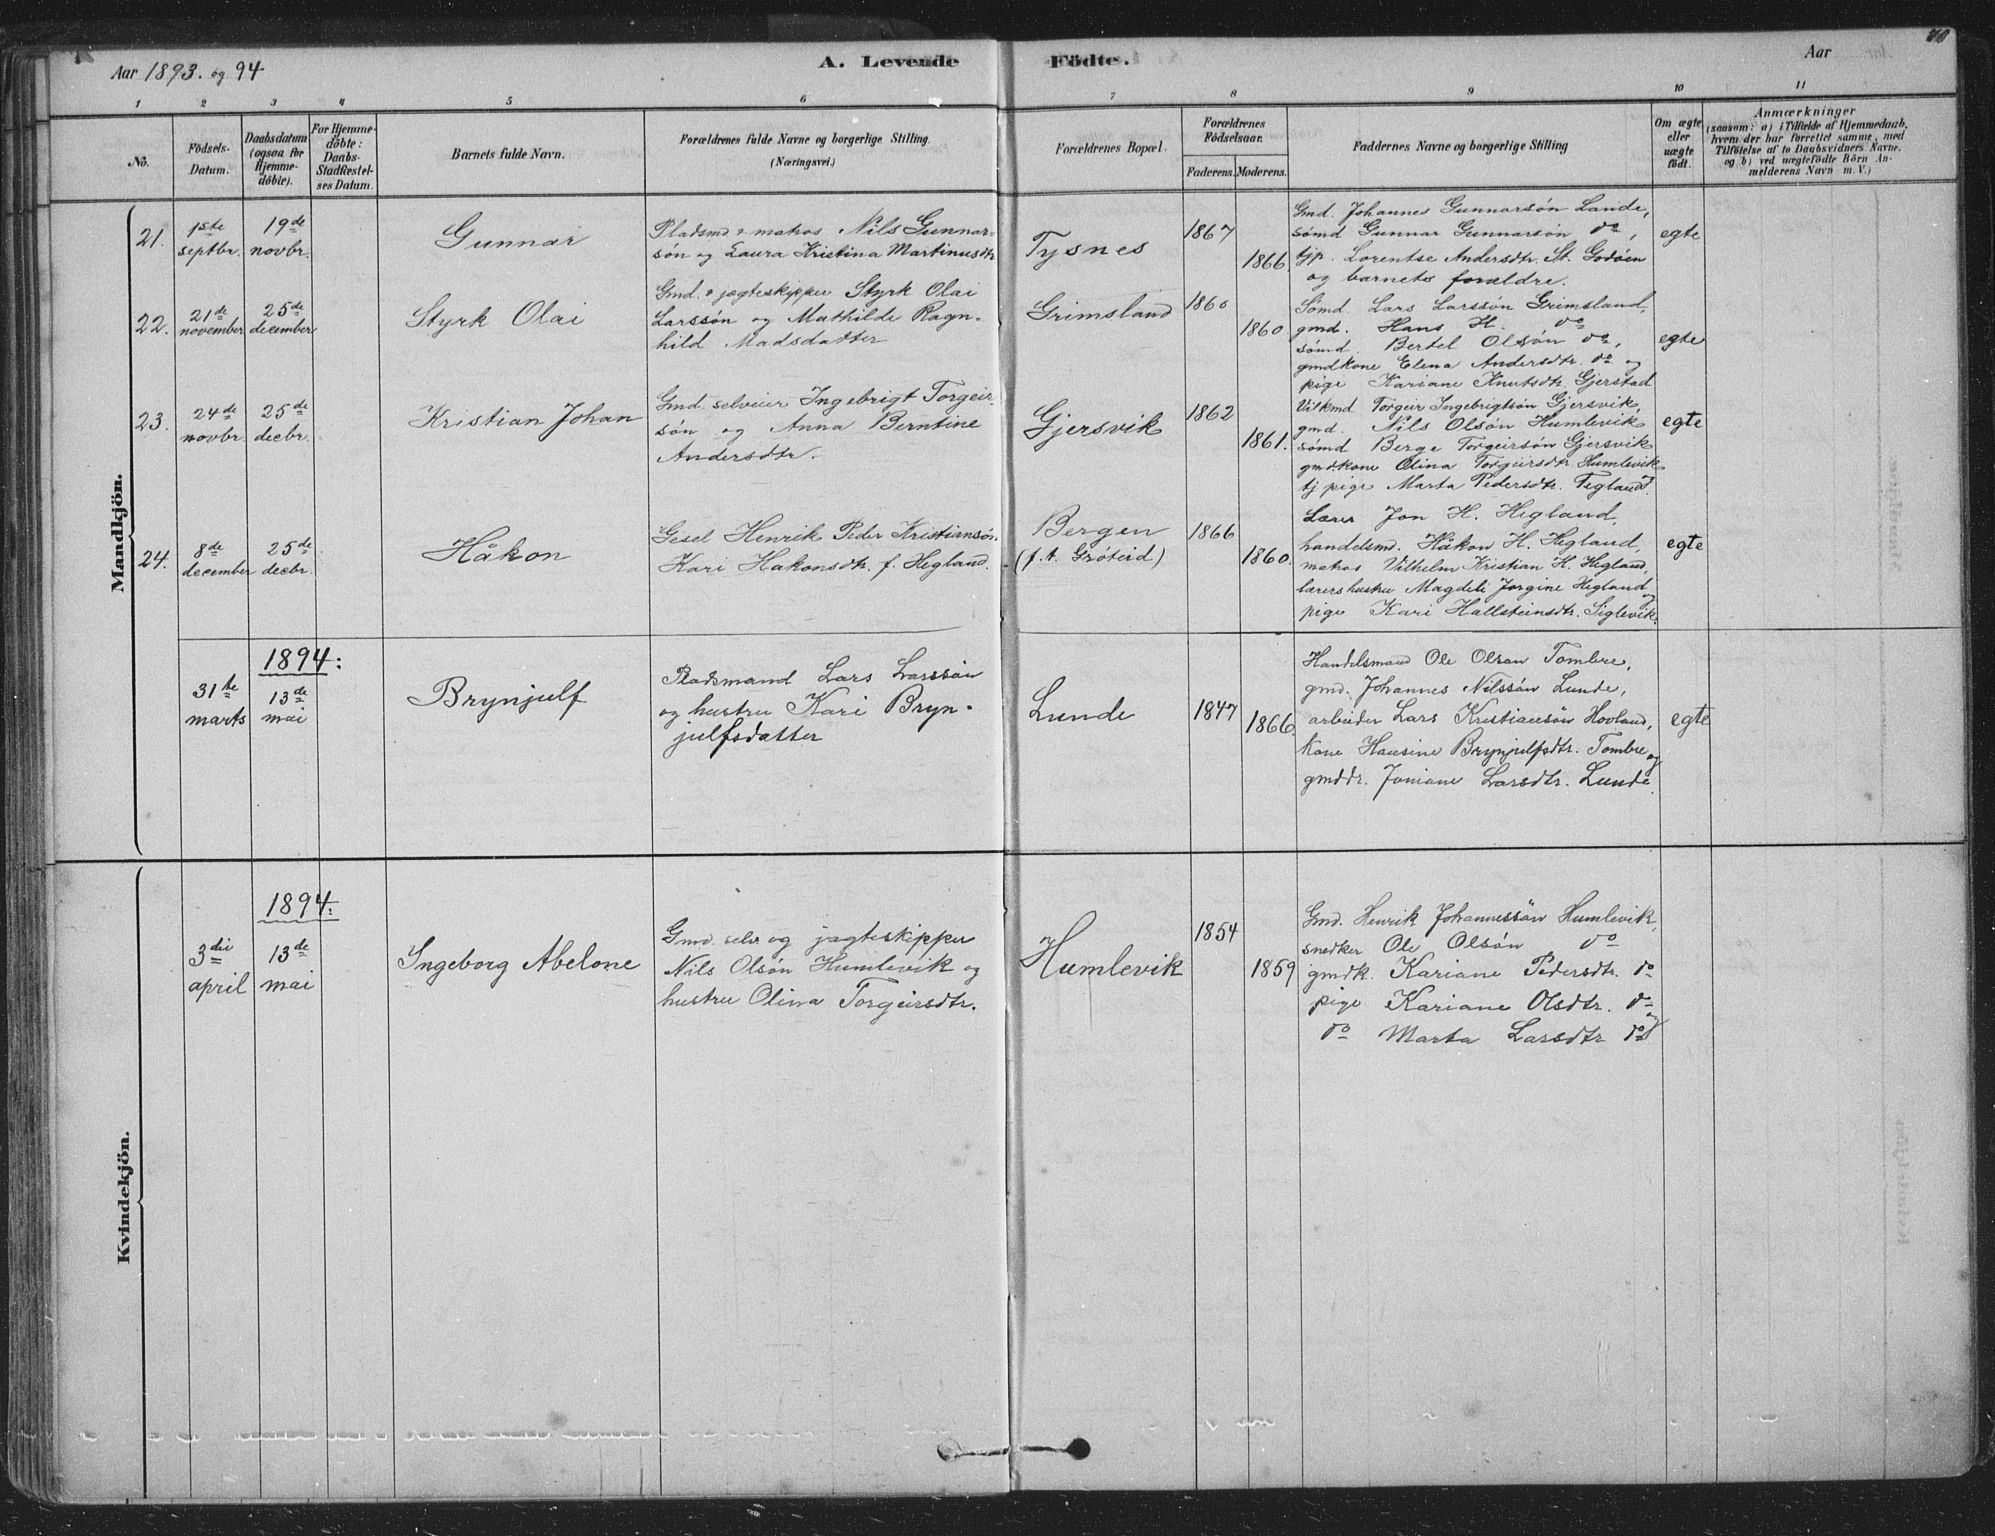 Aar 1893. og 94
A. Levende Födte.
Aar
70
1 2 3 4 5 6 7 8 9 10 11
No.
Födsels-
Datum.
Daabsdatum
(ogsaa for
Hjemme-
döbte).
For Hjemme-
döbte:
Daabs-
Stadfestel-
ses Datum.
Barnets fulde Navn.
Forældrenes fulde Navne og borgerlige Stilling.
(Næringsvei.)
Forældrenes Bopæl.
Forældrenes
Födselsaar.
Faderens. Moderens.
Faddernes Navne og borgerlige Stilling
Om ægte
eller
uægte
födt.
Anmærkninger
(saasom: a) i Tilfælde af Hjemmedaab,
hvem der har forrettet samme, med
Tilföielse af to Daabsvidners Navne,
og b) ved uægtefödte Börn An-
melderens Navn m. V.)
Mandkjön.
21.
1ste
septbr.
19de
novbr.
Gunnar
Pladsmd & matros Nils Gunnar-
søn og Laura Kristina Martinusdtr
Tysnes
1867
1866
Gmd. Johannes Gunnarsøn Lande,
sømd Gunnar Gunnarsøn do,
tjp. Lorentse Andersdtr. St. Godøen
og barnets forældre.
egte
22.
21de
november
25de
december
Styrk Olai
Gmd. & jægteskipper Styrk Olai
Larssøn og Mathilde Ragn-
hild Madsdatter
Grimsland
1860
1860
Sømd. Lars Larssøn Grimsland,
gmd. Hans H. do
sømd. Bertel Olsøn do,
gmdkone Elena Andersdtr. do og
pige Kariane Knutsdtr. Gjerstad
egte
23.
24de
novbr.
25de
decbr.
Kristian Johan
Gmd. selveier Ingebrigt Torgeir-
søn og Anna Berntine
Andersdtr.
Gjersvik
1862
1861.
Vilkmd Torgeir Ingebrigtsøn Gjersvik,
gmd. Nils Olsøn Humlevik
sømd Berge Torgeirsøn Gjersvik
gmdkone Olina Torgeirsdtr. Humlevik
tj pige Marta Pedersdtr. Tegland.
egte
24.
8de
december
25de
decbr.
Håkon
Gesel Henrik Peder Kristiansøn.
Kari Hakonsdtr. f. Hegland.
Bergen
(f. t. Grøteid)
1866
1860.
Lærer Jon H. Hegland,
handelsmd. Håkon H. Hegland,
matros Vilhelm Kristian H. Hegland,
lærershustru Magdeli Jorgine Hegland og
pige Kari Hallsteinsdtr. Siglevik.
egte
1894:
31te
marts
13de
mai
Brynjulf
Pladsmand Lars Larssøn
og hustru Kari Bryn-
julfsdatter
Lunde
1847
1866.
Handelsmand Ole Olson Tombre,
gmd. Johannes Nilssøn Lunde,
arbeider Lars Kristiansøn Hovland,
kone Hansine Brynjulfsdtr. Tombre og
gmddr. Joniane Larsdtr. Lunde.
egte
Kvindekjön.
1894:
3die
april
13de
mai
Ingeborg Abelone
Gmd. selv. og jagteskipper
Nils Olsøn Humlevik og
hustru Olina Torgeirsdtr.
Humlevik
1854
1859
Gmd. Henrik Johannessøn Humlevik,
snedker Ole Olsøn do
gmdk. Kariane Pedersdtr. do
pige Kariane Olsdtr. do og
do Marta Larsdtr do